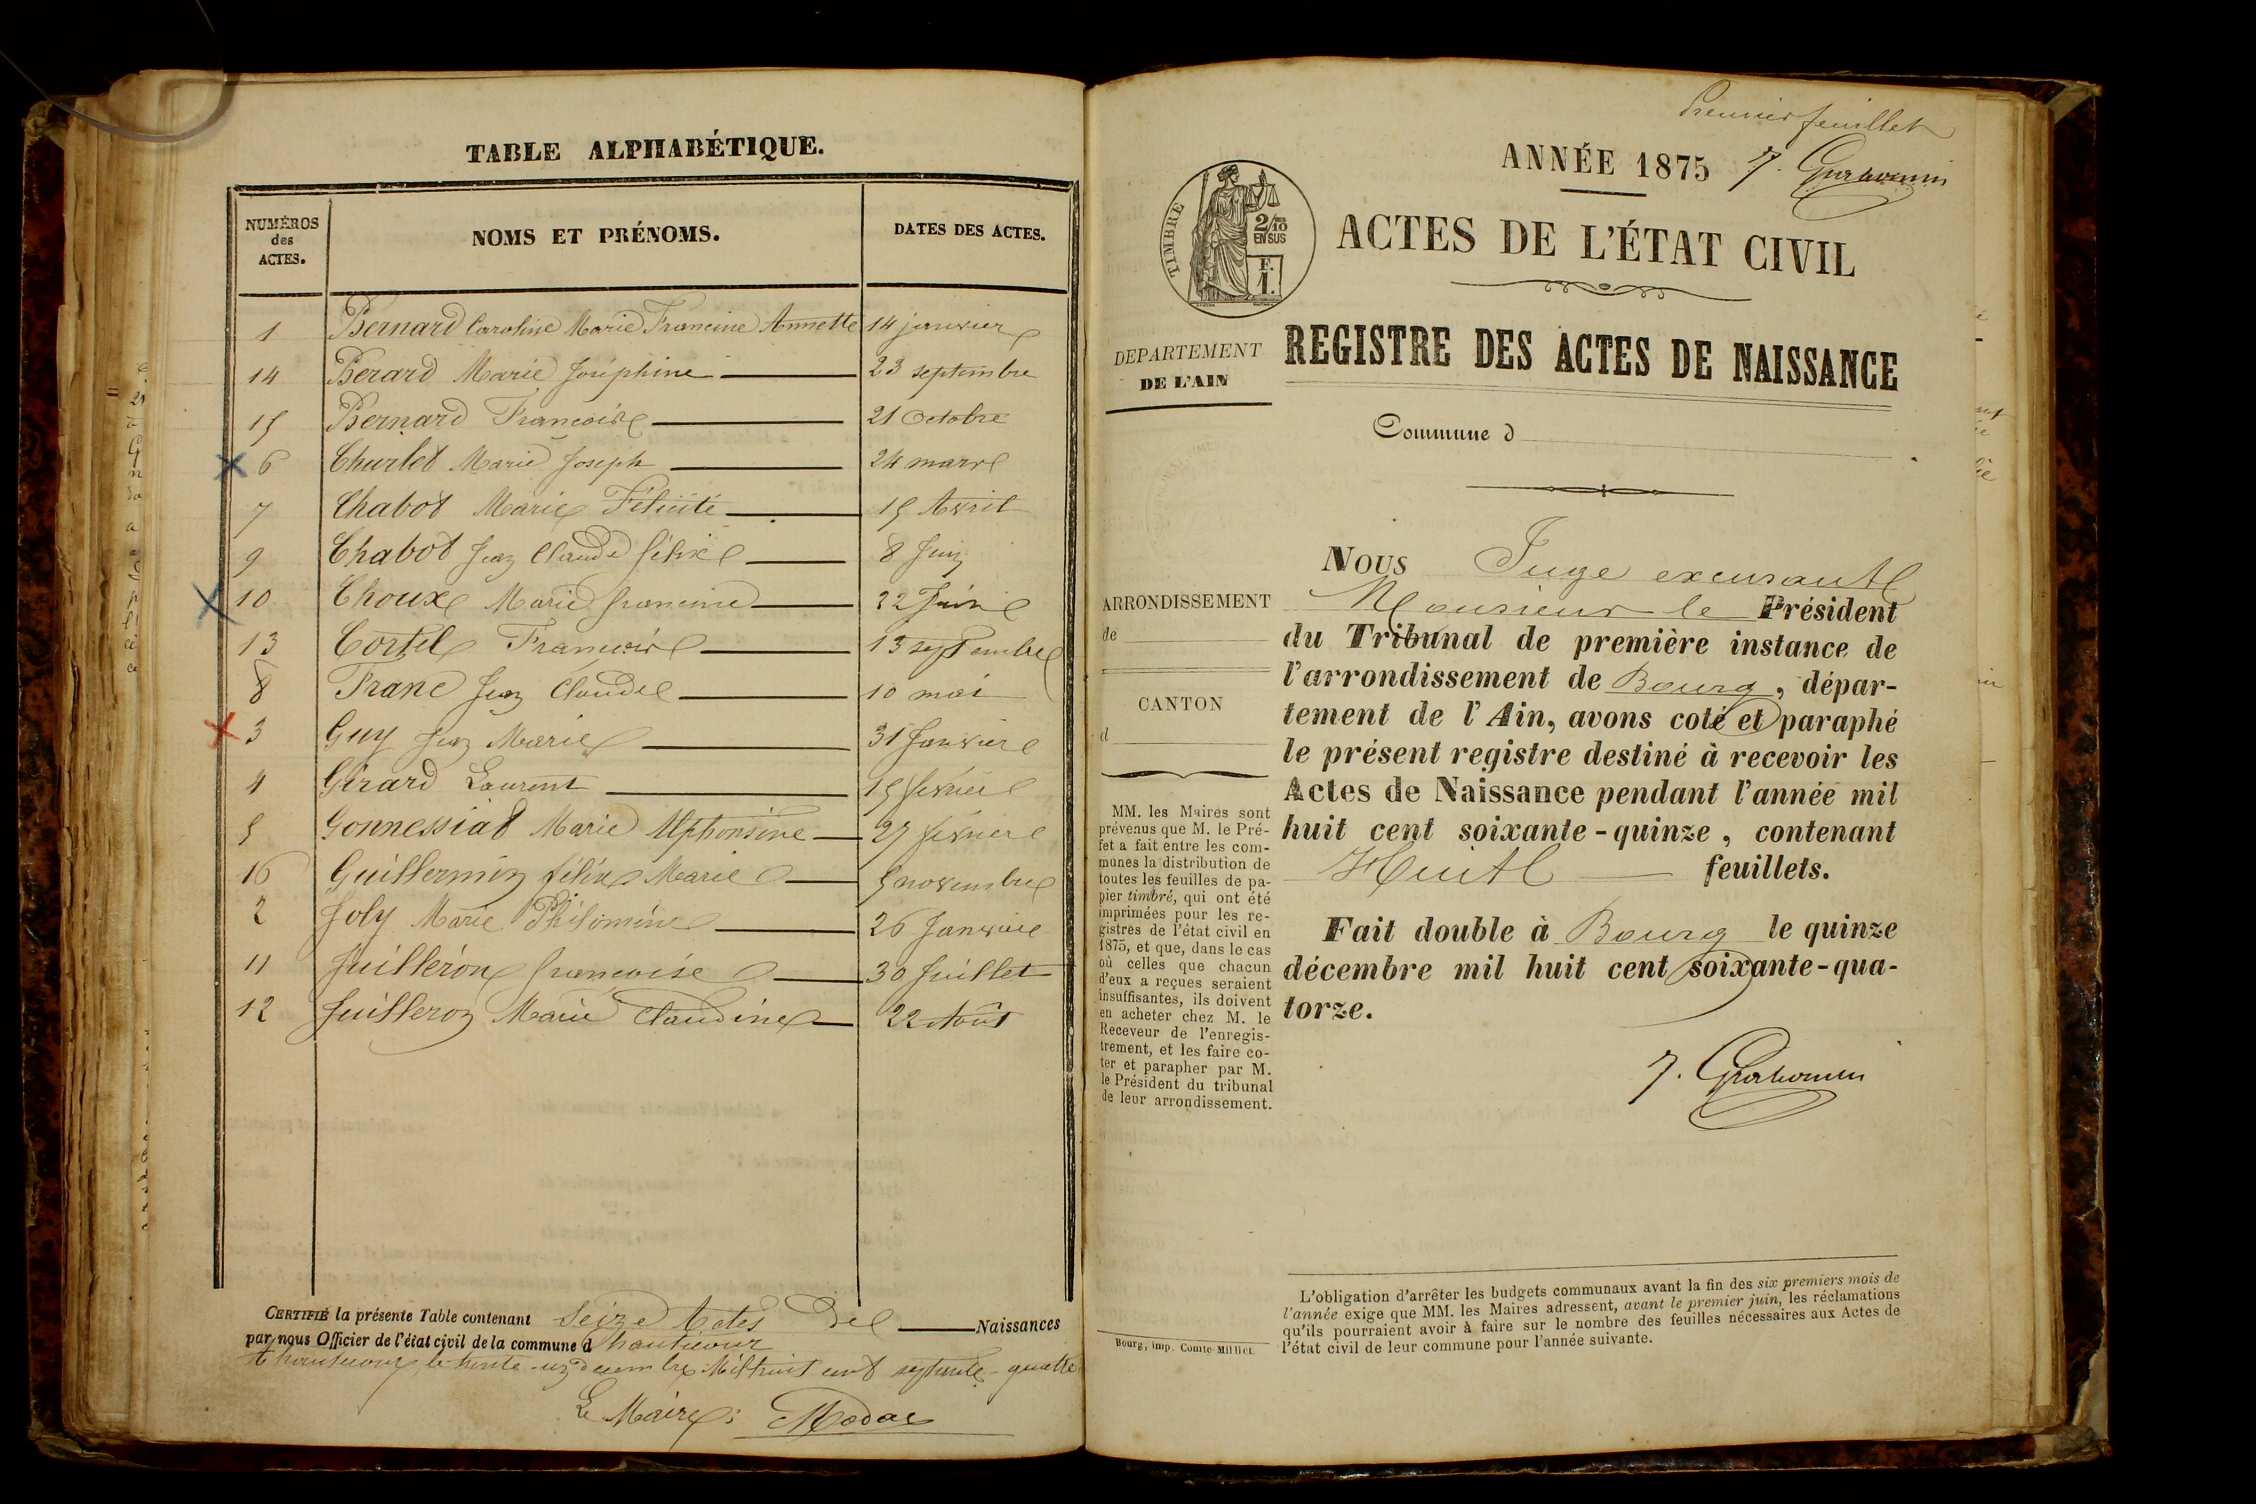 TABLE ALPHABÉTIQUE.
NUMÉROS des ACTES. NOMS ET PRÉNOMS. DATES DES ACTES.
1 Bernard Caroline Marie Francine Annette 14 janvier
14 Berard Marie Joséphine 23 septembre
15 Bernard Françoise 21 Octobre
6 Churlet Marie Joseph 24 mars
7 Chabot Marie Félicité 15 Avril
9 Chabot Jean Claude félix 8 Juin
10 Choux Marie francine 22 Juin
13 Cortel Françoise 13 septembre
8 Franc Jean Claude 10 mai
3 Guy Jean Marie 31 Janvier
4 Girard Laurent 15 février
5 Gonnessiat Marie Alphonsine 27 février
16 Guillermin félix Marie 5 novembre
2 Joly Marie Philomène 26 Janvier
11 Juilleron françoise 30 Juillet
12 Juilleron Marie Claudine 22 Août
CERTIFIÉ la présente Table contenant Seize Actes de Naissances
par nous Officier de l'état civil de la commune d
le trente-un décembre Mil huit cent septante-quatre
Le Maire:
Premier feuillet
ANNÉE 1875
TIMBRE
2/10 EN SUS
F. 1.
ACTES DE L'ÉTAT CIVIL
DEPARTEMENT
DE L'AIN
REGISTRE DES ACTES DE NAISSANCE
Commune d
ARRONDISSEMENT
de
CANTON
d
MM. les Maires sont
prévenus que M. le Pré-
fet a fait entre les com-
munes la distribution de
toutes les feuilles de pa-
pier timbré, qui ont été
imprimées pour les re-
gistres de l'état civil en
1875, et que, dans le cas
où celles que chacun
d'eux a reçues seraient
insuffisantes, ils doivent
en acheter chez M. le
Receveur de l'enregis-
trement, et les faire co-
ter et parapher par M.
le Président du tribunal
de leur arrondissement.
Bourg, imp. Comte-Milliet.
NOUS Juge
Monsieur le Président
du Tribunal de première instance de
l'arrondissement de Bourg, dépar-
tement de l'Ain, avons coté et paraphé
le présent registre destiné à recevoir les
Actes de Naissance pendant l'année mil
huit cent soixante-quinze, contenant
Huit feuillets.
Fait double à Bourg le quinze
décembre mil huit cent soixante-qua-
torze.
L'obligation d'arrêter les budgets communaux avant la fin des six premiers mois de
l'année exige que MM. les Maires adressent, avant le premier juin, les réclamations
qu'ils pourraient avoir à faire sur le nombre des feuilles nécessaires aux Actes de
l'état civil de leur commune pour l'année suivante.